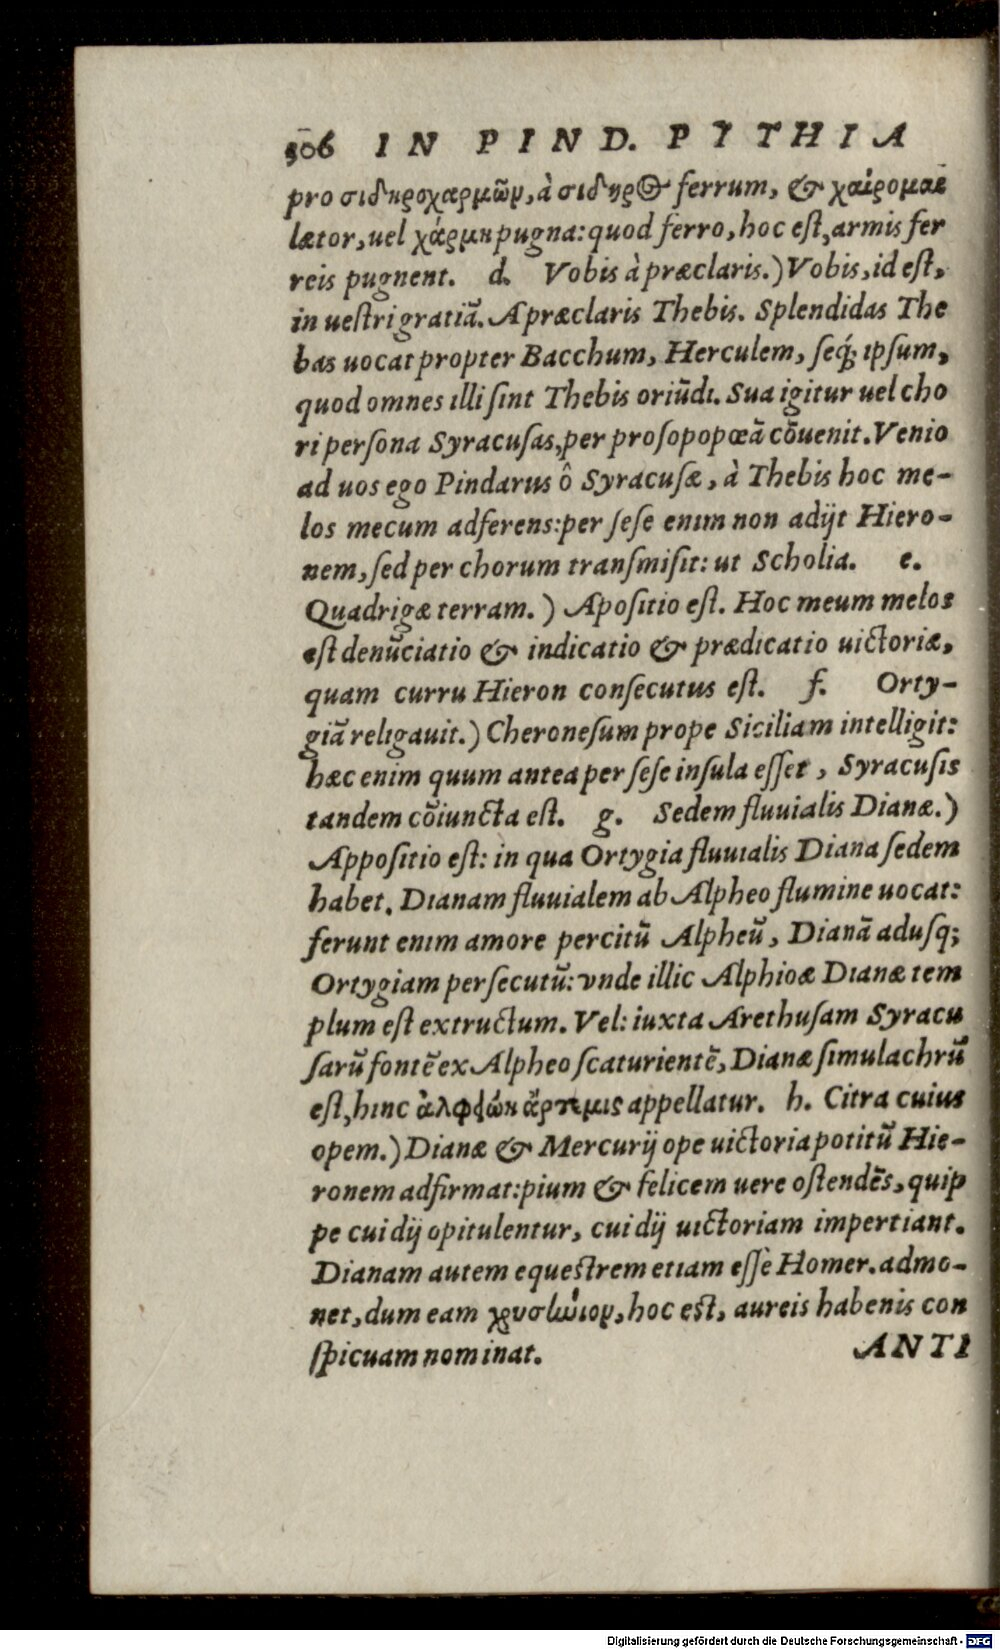 306 IN PIND. PYTHIA
pro σιδηροχαρμῶν, à σιδηρος ferrum, & χαίρομαι
lætor, uel χάρμη pugna: quod ferro, hoc est, armis fer
reis pugnent. d. Vobis à præclaris.) Vobis, id est,
in uestri gratiā. A præclaris Thebis. Splendidas The
bas uocat propter Bacchum, Herculem, seq́; ipsum,
quod omnes illi sint Thebis oriūdi. Sua igitur uel cho
ri persona Syracusas, per prosopopœā cōuenit. Venio
ad uos ego Pindarus ô Syracusæ, à Thebis hoc me-
los mecum adferens: per sese enim non adijt Hiero-
nem, sed per chorum transmisit: ut Scholia. e.
Quadrigæ terram.) Apositio est. Hoc meum melos
est denūciatio & indicatio & prædicatio uictoriæ,
quam curru Hieron consecutus est. f. Orty-
giā religauit.) Cheronesum prope Siciliam intelligit:
hæc enim quum antea per sese insula esset, Syracusis
tandem cōiuncta est. g. Sedem fluuialis Dianæ.)
Appositio est: in qua Ortygia fluuialis Diana sedem
habet. Dianam fluuialem ab Alpheo flumine uocat:
ferunt enim amore percitū Alpheū, Dianā adusq;
Ortygiam persecutū: vnde illic Alphioæ Dianæ tem
plum est extructum. Vel: iuxta Arethusam Syracu
sarū fontē ex Alpheo scaturientē, Dianæ simulachrū
est, hinc ἀλφειώη ἄρτεμις appellatur. h. Citra cuius
opem.) Dianæ & Mercurij ope uictoria potitū Hie-
ronem adfirmat: pium & felicem uere ostendēs, quip
pe cui dij opitulentur, cui dij uictoriam impertiant.
Dianam autem equestrem etiam essè Homer. admo-
net, dum eam χρυσήνιον, hoc est, aureis habenis con
spicuam nominat. ANTI
Digitalisierung gefördert durch die Deutsche Forschungsgemeinschaft - DFG